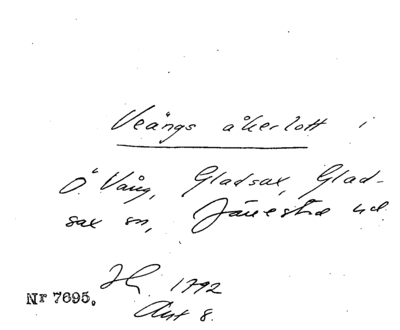 Veångs åkerlott i
Ö Vång, Gladsax, Glad-
sax sn, Järrestad hd
1792
Akt 8.
Nr 7695.